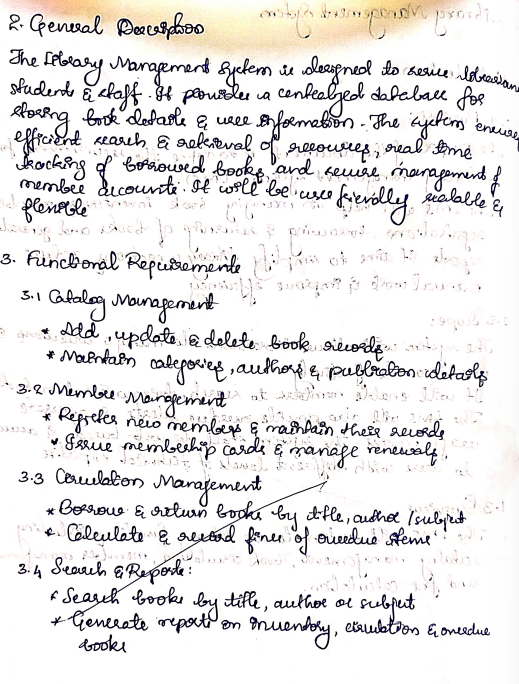 2. General Description
The Library Management System is designed to serve librarians
students & staff. It provides a centralized database for
storing book details & user information. The system ensures
efficient search & retrieval of resources, real time
tracking of borrowed books and secure management of
member accounts. It will be user friendly scalable &
flexible
3. Functional Requirements
3.1 Catalog Management
* Add, update & delete book records
* Maintain categories, authors & publication details
3.2 Member Management
* Register new members & maintain their records
* Issue membership cards & manage renewals
3.3 Circulation Management
* Borrow & return books by title, author / subject
* Calculate & record fines of overdue items
3.4 Search & Reports:
* Search books by title, author or subject
* Generate reports on Inventory, circulation & overdue
books